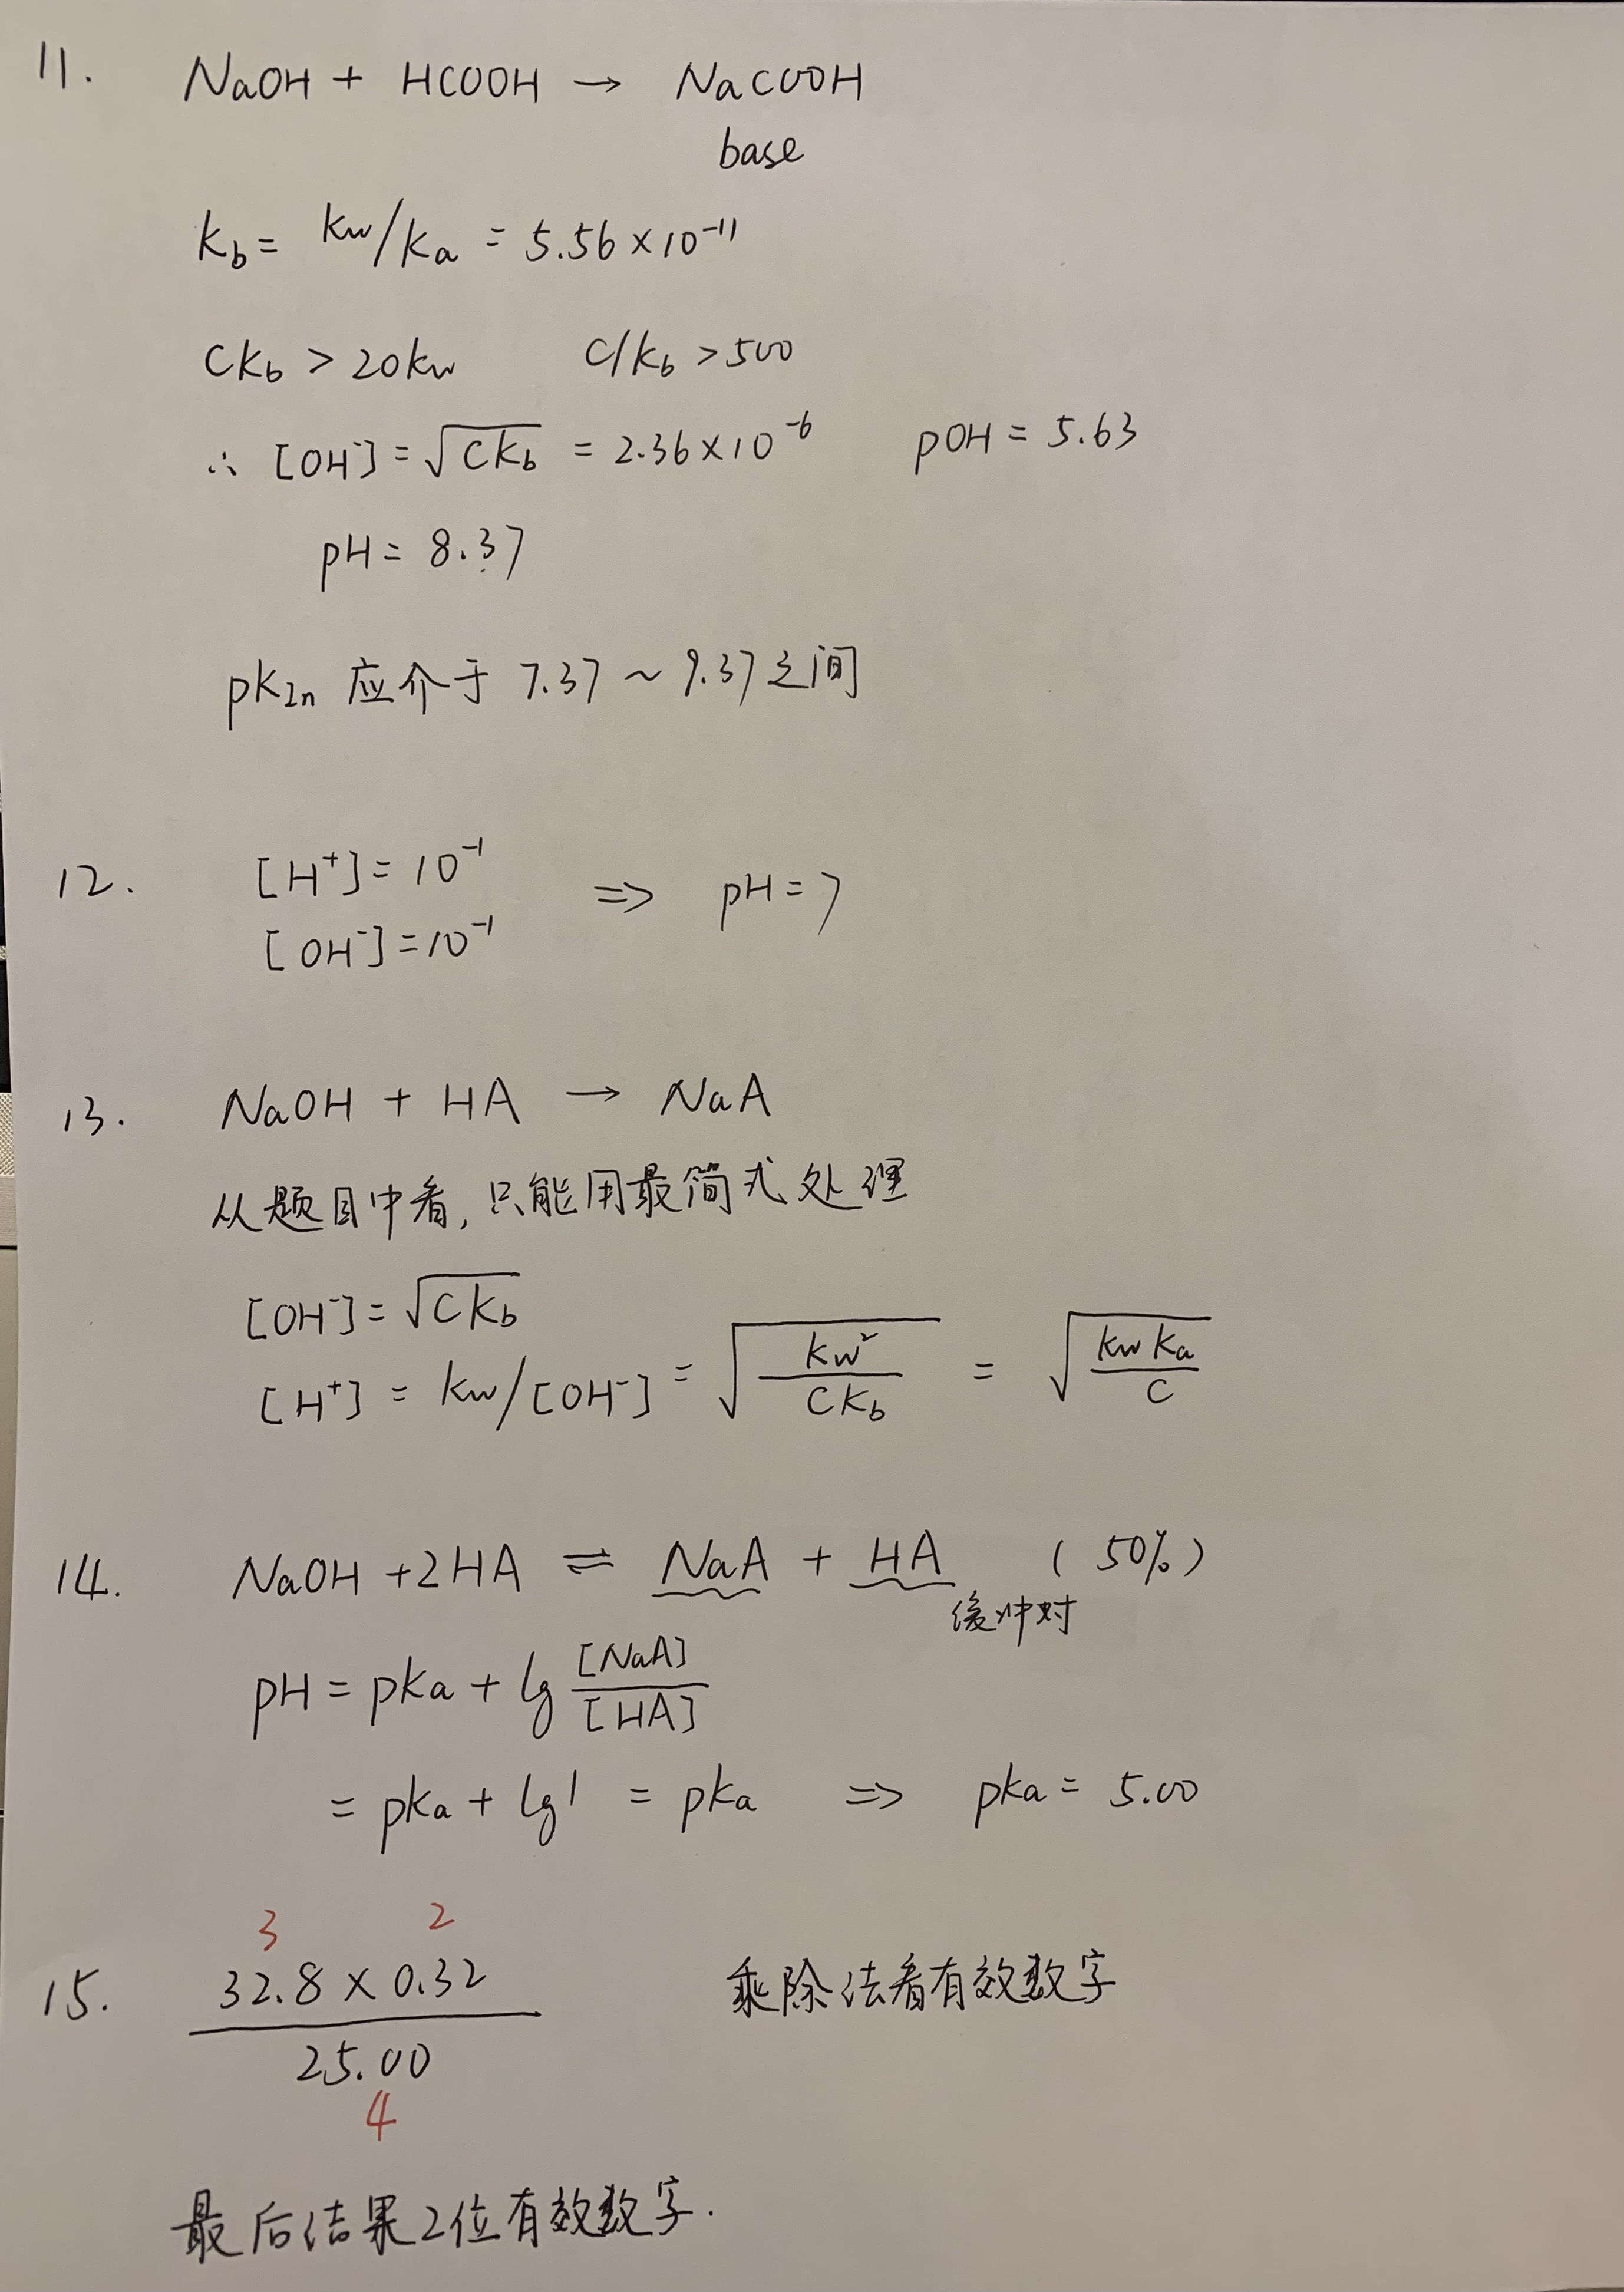 11. NaOH + HCOOH → NaCOOH
base
Kb = Kw/Ka = 5.56×10⁻¹¹
CKb > 20Kw C/Kb > 500
∴ [OH⁻] = √CKb = 2.36×10⁻⁶ pOH = 5.63
pH = 8.37
pKIn 应介于 7.37 ~ 9.37之间
12. [H⁺] = 10⁻¹
[OH⁻] = 10⁻¹ ⇒ pH = 7
13. NaOH + HA → NaA
从题目中看, 只能用最简式处理
[OH⁻] = √CKb
[H⁺] = Kw/[OH⁻] = √(Kw²/CKb) = √(KwKa/C)
14. NaOH + 2HA ⇌ NaA + HA (50%)
缓冲对
pH = pKa + lg [NaA]/[HA]
= pKa + lg1 = pKa ⇒ pKa = 5.00
3 2
15. 32.8 × 0.32 乘除法看有效数字
25.00
4
最后结果2位有效数字.